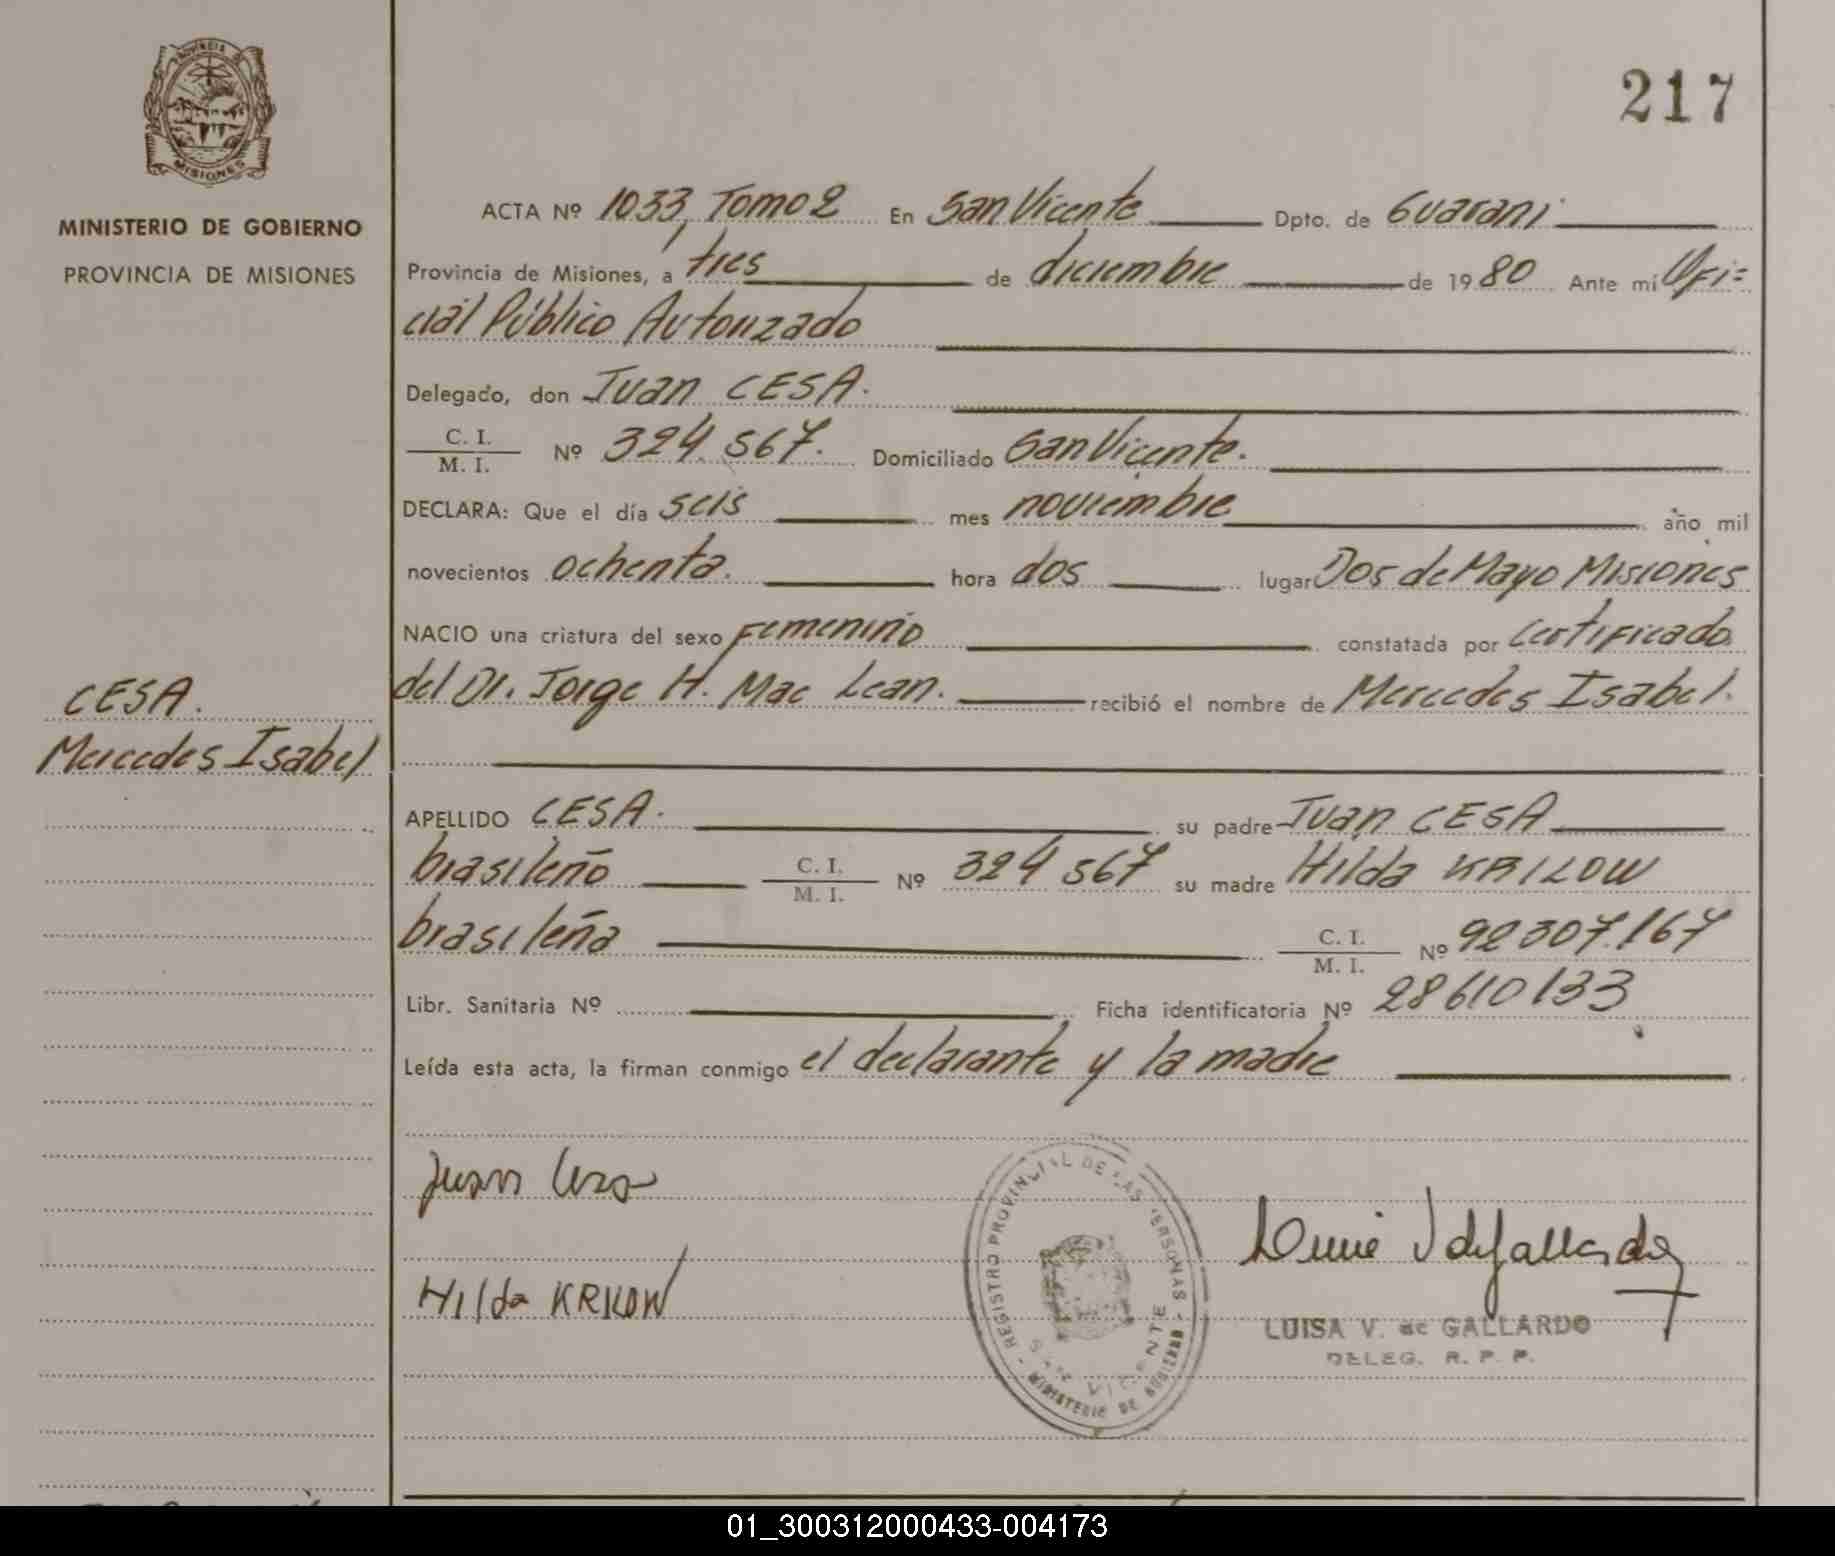 217
PROVINCIA DE
MISIONES
MINISTERIO DE GOBIERNO
PROVINCIA DE MISIONES
CESA.
Mercedes Isabel
ACTA Nº 1033, Tomo 2 En San Vicente Dpto. de Guarani
Provincia de Misiones, a tres de diciembre de 1980 Ante mí Ofi=
cial Público Autorizado
Delegado, don Juan CESA.
C. I.
M. I. Nº 324.567. Domiciliado San Vicente.
DECLARA: Que el día seis mes noviembre año mil
novecientos ochenta. hora dos lugar Dos de Mayo Misiones
NACIO una criatura del sexo Femenino constatada por Certificado
del Dr. Jorge H. Mac Lean. recibió el nombre de Mercedes Isabel.
APELLIDO CESA. su padre Juan CESA
brasileño C. I.
M. I. Nº 324 567 su madre Hilda
brasileña C. I.
M. I. Nº 92 307.167
Libr. Sanitaria Nº Ficha identificatoria Nº 28610133
Leída esta acta, la firman conmigo el declarante y la madre
Juan Cesa
Hilda
REGISTRO PROVINCIAL DE LAS PERSONAS
SAN VICENTE
MINISTERIO DE GOBIERNO
LUISA V. de GALLARDO
DELEG. R. P. P.
01_300312000433-004173